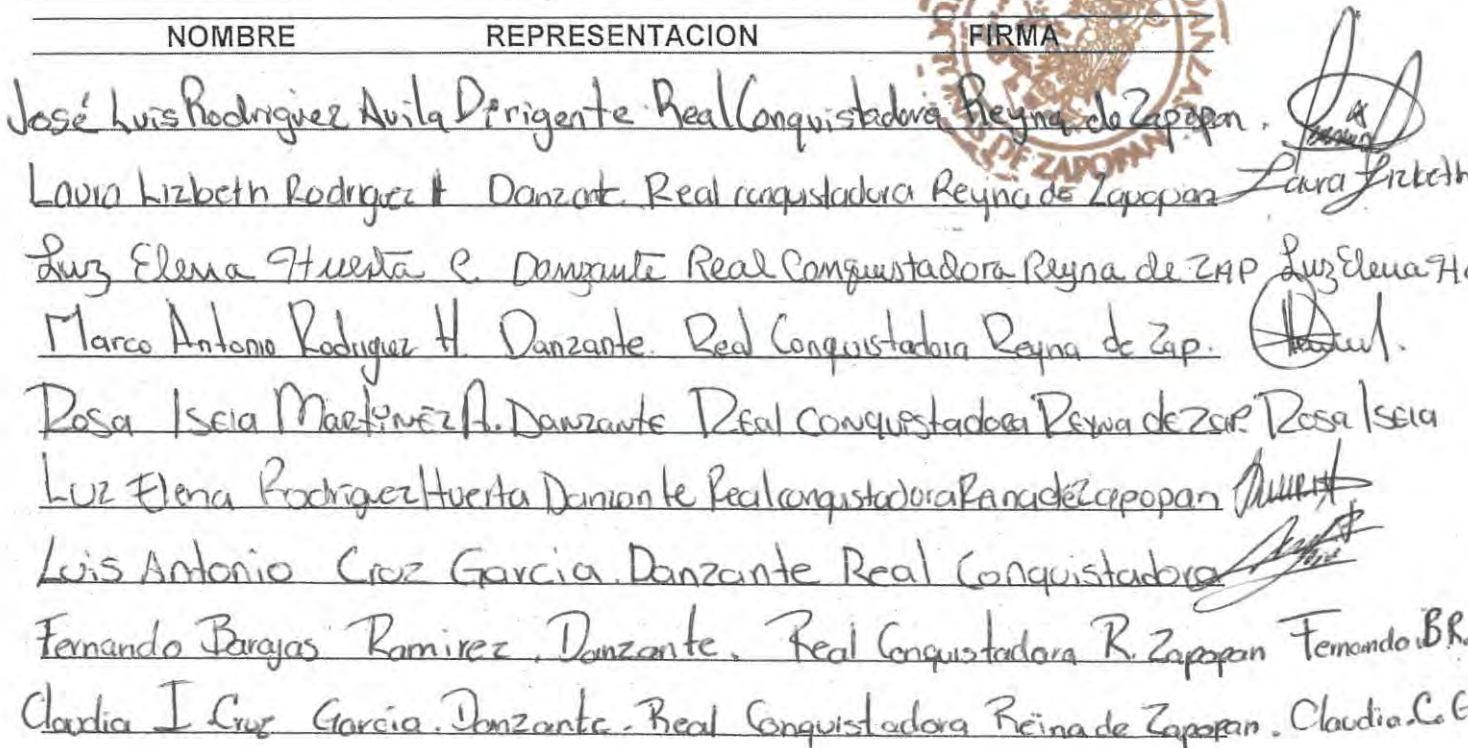 NOMBRE REPRESENTACION FIRMA
José Luis Rodriguez Avila Dirigente Real Conquistadora Reyna de Zapopan.
Laura Lizbeth Rodriguez H Danzante Real conquistadora Reyna de Zapopan Laura Lizbeth
Luz Elena Huerta C. Danzante Real Conquistadora Reyna de ZAP Luz Elena
DE ZAPOPAN
Marco Antonio Rodriguez H. Danzante. Real Conquistadora Reyna de Zap.
Rosa Iseia Martinez A. Danzante Real Conquistadora Reyna de Zap. Rosa Iseia
Luz Elena Rodriguez Huerta Danzante Real conquistadora de Zapopan
Luis Antonio Cruz Garcia. Danzante Real Conquistadora
Fernando Barajas Ramirez. Danzante. Real Conquistadora R. Zapopan Fernando.B.R.
Claudia I Cruz Garcia. Danzante. Real Conquistadora Reina de Zapopan. Claudia.C.G